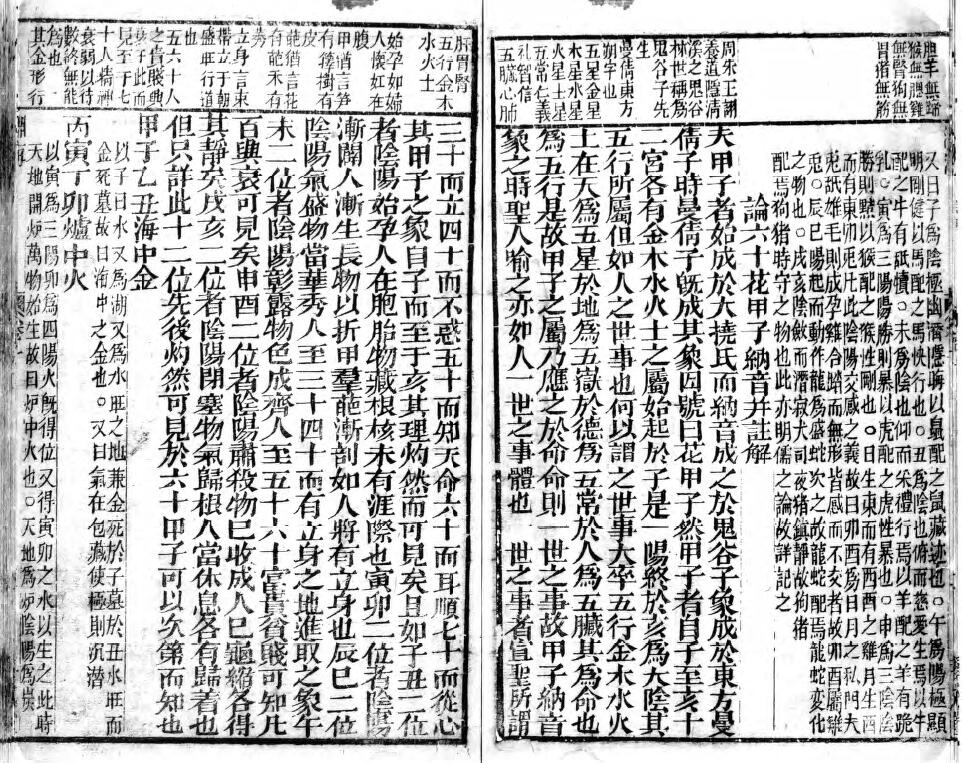 胆羊無神
猴無脾雞
無腎狗無
胃猪無筋
周朱王詡
養道隂清
溪之鬼谷
林世稱爲
鬼谷子先
生
曼倩東方
朔字也
五星金星
木星水星
火星土星
五常仁義
礼智信
五臟心肺
又曰子爲陰極幽潜隱晦以鼠配之鼠藏迹也○午爲陽極顯
明剛健以馬配之馬快行也○丑爲陰也俯而慈愛生焉以牛
配之牛有䑛犢○未爲陰也仰而采禮行焉以羊配之羊有跪
乳○寅爲三陽陽勝則暴以虎配之虎性暴也○申爲三陰陰
勝則黠以猴配之猴性剛也○日生東而有酉酉之雞月生酉
而有東卯兎比此陰陽交感之義故曰卯酉爲日月之私門夫
兎䑛雄毛則成孕雞合踏而無形皆感而不交者故卯兎酉屬雞
兎○辰巳陽起而動作龍爲盛蛇次之故龍蛇配焉龍蛇變化
之物也○戌亥陰斂而潜寂犬司夜猪鎮靜故狗猪
配焉狗猪時守之物也此亦明儒之論故詳記之
論六十花甲子納音并註解
夫甲子者始成於大撓氏而納音成之於鬼谷子象成於東方曼
倩子時曼倩子旣成其象因號曰花甲子然甲子者自子至亥十
二宮各有金木水火土之屬始起於子是一陽終於亥爲六陰其
五行所屬但如人之世事也何以謂之世事大率五行金木水火
土在天爲五星於地爲五嶽於德爲五常於人爲五臟其爲命也
爲五行是故甲子之屬乃應之於命命則一世之事故甲子納音
象之時聖人喻之亦如人一世之事體也　世之事者宣聖所謂
肝脾腎
五行金木
水火土
始孕如婦
人懷妊在
腹
甲猶言笋
有籜樹有
皮
葩猶言花
有葩未有
蒂
立身言東
帶立于朝
盛旺行道
五六十人
之貴賤典
衰于此而
見至于七
十人精神
衰弱以待
數終無能
爲也
其金形行
三十而立四十而不惑五十而知天命六十而耳順七十而從心
其甲子之象自子而至于亥其理灼然而可見矣且如子丑二位
者陰陽始孕人在胞胎物藏根核未有涯際也寅卯二位者陰陽
漸闢人漸生長物以折甲羣葩漸剖如人將有立身也辰巳二位
陰陽氣盛物當華秀人至三十四十而有立身之地進取之象午
未二位者陰陽彰露物色成齊人至五十六十富貴貧賤可知凡
百興衰可見矣申酉二位者陰陽肅殺物已收成人已龜縮各得
其靜矣戌亥二位者陰陽閉塞物氣歸根人當休息各有歸着也
但只詳此十二位先後灼然可見於六十甲子可以次第而知也
甲子乙丑海中金
以子曰水又爲湖又爲水旺之地兼金死於子墓於丑水旺而
金死墓故曰海中之金也○又曰氣在包藏使極則沉潜
丙寅丁卯爐中火
以寅爲三陽卯爲四陽火旣得位又得寅卯之水以生之此時
天地開炉萬物始生故曰炉中火也○天地爲炉陰陽爲炭